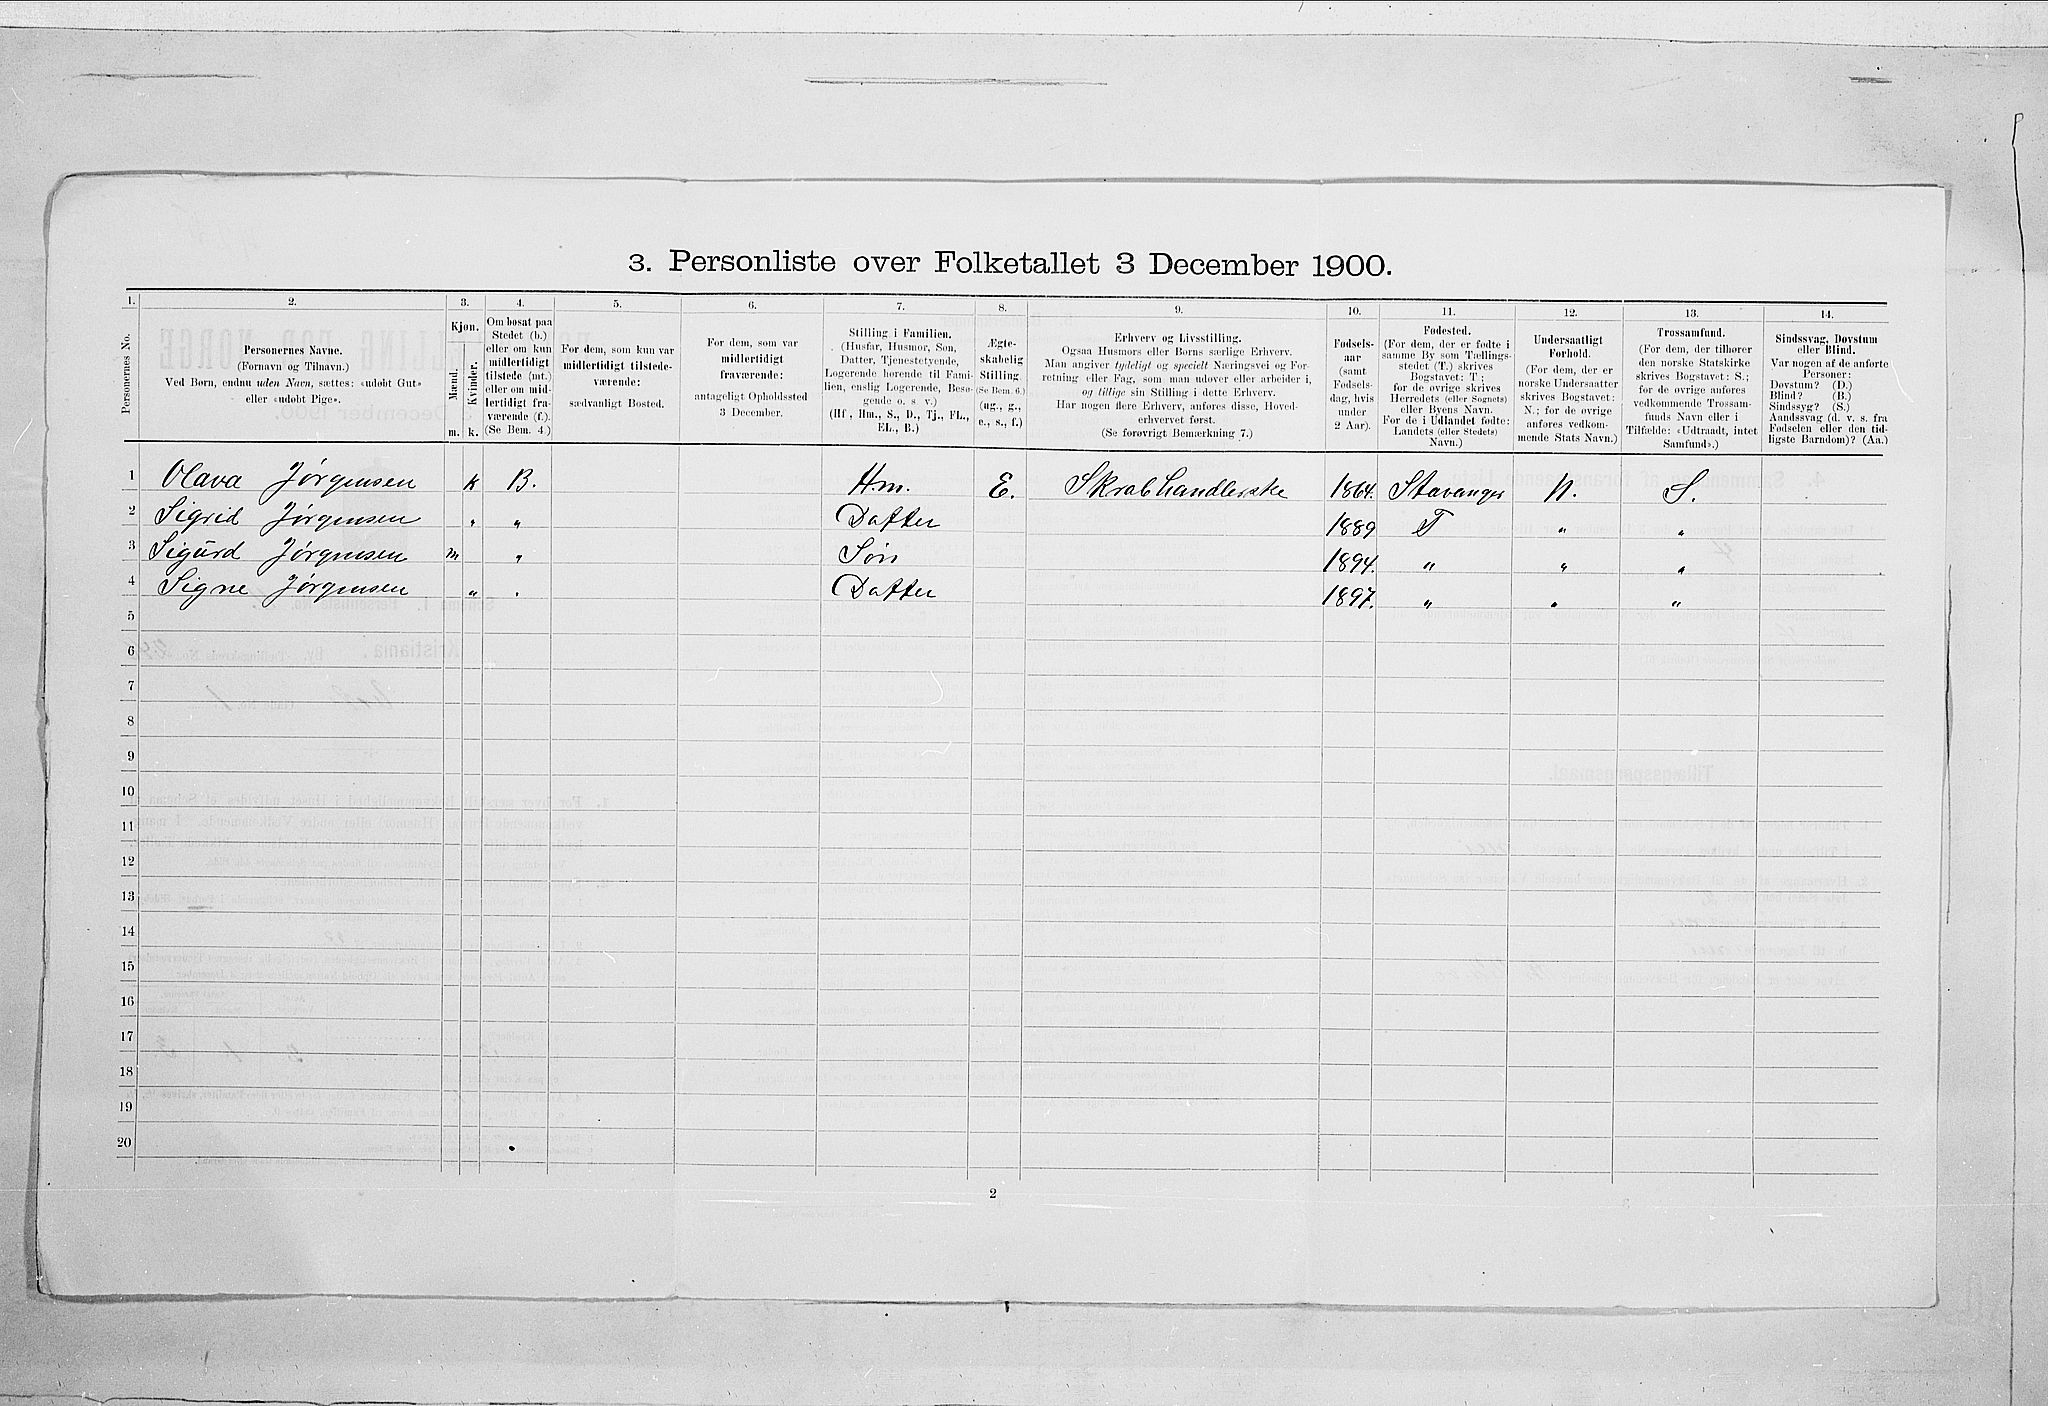 3. Personliste over Folketallet 3 December 1900.
1. 2. 3. 4. 5. 6. 7. 8. 9. 10. 11. 12. 13. 14.
Personernes No.
Personernes Navne.
(Fornavn og Tilnavn.)
Ved Børn, endnu uden Navn, sættes: «udøbt Gut»
eller «udøbt Pige».
Kjøn.
Mænd.
Kvinder.
m. k.
Om bosat paa
Stedet (b.)
eller om kun
midlertidigt
tilstede (mt.)
eller om mid-
lertidigt fra-
værende (f.).
(Se Bem. 4.)
For dem, som kun var
midlertidigt tilstede-
værende:
sædvanligt Bosted.
For dem, som var
midlertidigt
fraværende:
antageligt Opholdssted
3 December.
Stilling i Familien.
(Husfar, Husmor, Søn,
Datter, Tjenestetyende,
Logerende hørende til Fami-
lien, enslig Logerende, Besø-
gende o. s. v.)
(Hf., Hm., S., D., Tj., FL.,
EL., B.)
Ægte-
skabelig
Stilling.
(Se Bem. 6.)
(ug., g.,
e., s., f.)
Erhverv og Livsstilling.
Ogsaa Husmors eller Børns særlige Erhverv.
Man angiver tydeligt og specielt Næringsvei og For-
retning eller Fag, som man udøver eller arbeider i,
og tillige sin Stilling i dette Erhverv.
Har nogen flere Erhverv, anføres disse, Hoved-
erhvervet først.
(Se forøvrigt Bemærkning 7.)
Fødsels-
aar
(samt
Fødsels-
dag, hvis
under
2 Aar).
Fødested.
(For dem, der er fødte i
samme By som Tællings-
stedet (T.) skrives
Bogstavet: T;
for de øvrige skrives
Herredets (eller Sognets)
eller Byens Navn.
For de i Udlandet fødte:
Landets (eller Stedets)
Navn.)
Undersaatligt
Forhold.
(For dem, der er
norske Undersaatter
skrives Bogstavet:
N.; for de øvrige
anføres vedkom-
mende Stats Navn.)
Trossamfund.
(For dem, der tilhører
den norske Statskirke
skrives Bogstavet: S.;
for de øvrige anføres
vedkommende Trossam-
funds Navn eller i
Tilfælde: «Udtraadt, intet
Samfund».)
Sindssvag, Døvstum
eller Blind.
Var nogen af de anførte
Personer:
Døvstum? (D.)
Blind? (B.)
Sindssyg? (S.)
Aandssvag (d. v. s. fra
Fødselen eller den tid-
ligste Barndom)? (Aa.)
1 Olava Jørgensen k B. Hm. E. Skrabhandlerske 1864. Stavanger N. S.
2 Sigrid Jørgensen " " Datter 1889 T " "
3 Sigurd Jørgensen m " Søn 1894. " " "
4 Signe Jørgensen " " Datter 1897. " " "
5
6
7
8
9
10
11
12
13
14
15
16
17
18
19
20
2